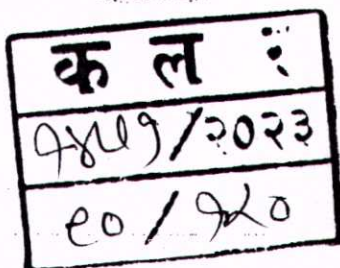 क ल :
१४५१/२०२३
९०/१४०